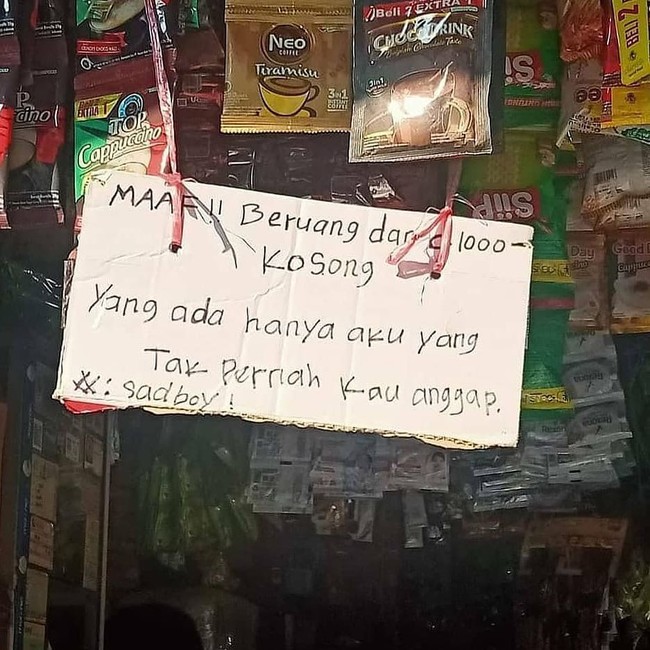 Beli 7 EXTRA 1
CHOCODRINK
3in1
NEO
COFFEE
Tiramisu
3IN1
INSTANT
COFFEE
TOP
Cappuccino
MAAF!! Beruang dan C 1000-
Kosong
Yang ada hanya aku yang
Tak Pernah Kau anggap.
: sadboy!